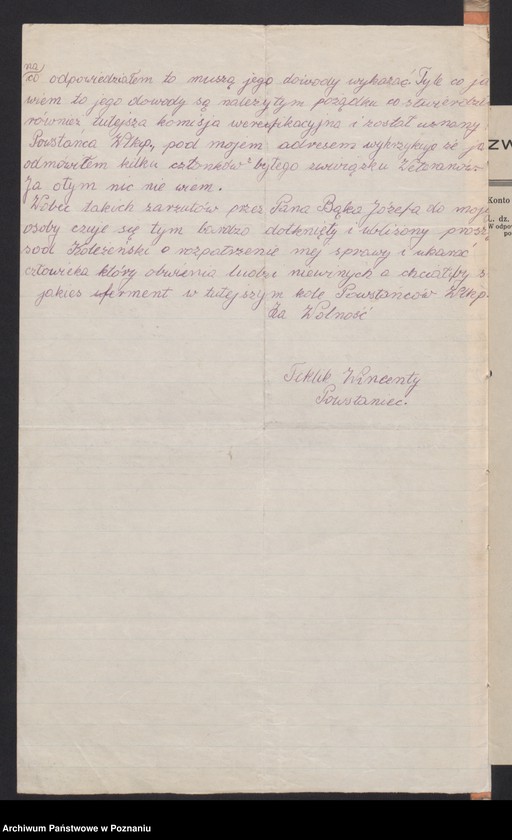 na
co odpowiedziałem to muszą jego dowody wykazać. Tyle co ja
wiem to jego dowody są należytym pożądku co stwierdziła
również tutejsza komisja weryfikacyjna i został uznany
Powstańca Wlkp, pod mojem adresem wykrzykuje że ja
odmówiłem kilku członków z byłego związku Weteranów
Ja otym nic nie wiem.
Wobec takich zarzutów przez Pana Bąka Józefa do mojej
osoby czuje się tym bardzo dotknięty i ubliżony proszę
sąd Koleżeński o rozpatrzenie mej sprawy i ukarać
człowieka który obwienia ludzi niewinnych a chciałby
jakieś ferment w tutejszym kole Powstańców Wlkp.
Za Wolność
Teklik Wincenty
Powstaniec.
ZW
Konto
L. dz.
W odpow
po
Archiwum Państwowe w Poznaniu